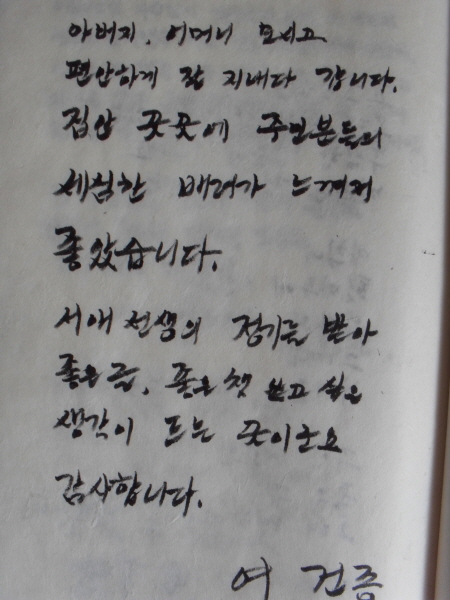 아버지, 어머니 모시고
편안하게 잘 지내다 갑니다.
집안 곳곳에 주인분들의
세심한 배려가 느껴져
좋았습니다.
서애 선생의 정기를 받아
좋은 글, 좋은 책 쓰고 싶은
생각이 드는 곳이군요
감사합니다.
여 건종